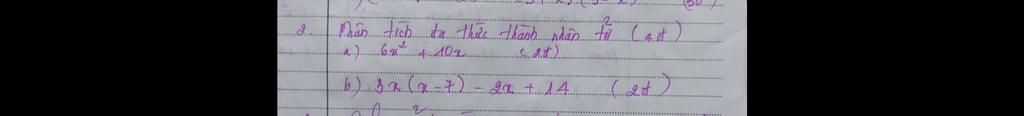 2. Phân tích đa thức thành nhân tử (4đ)
a) 6x² + 10x (2đ)
b) 3x(x-7) - 2x + 14 (2đ)